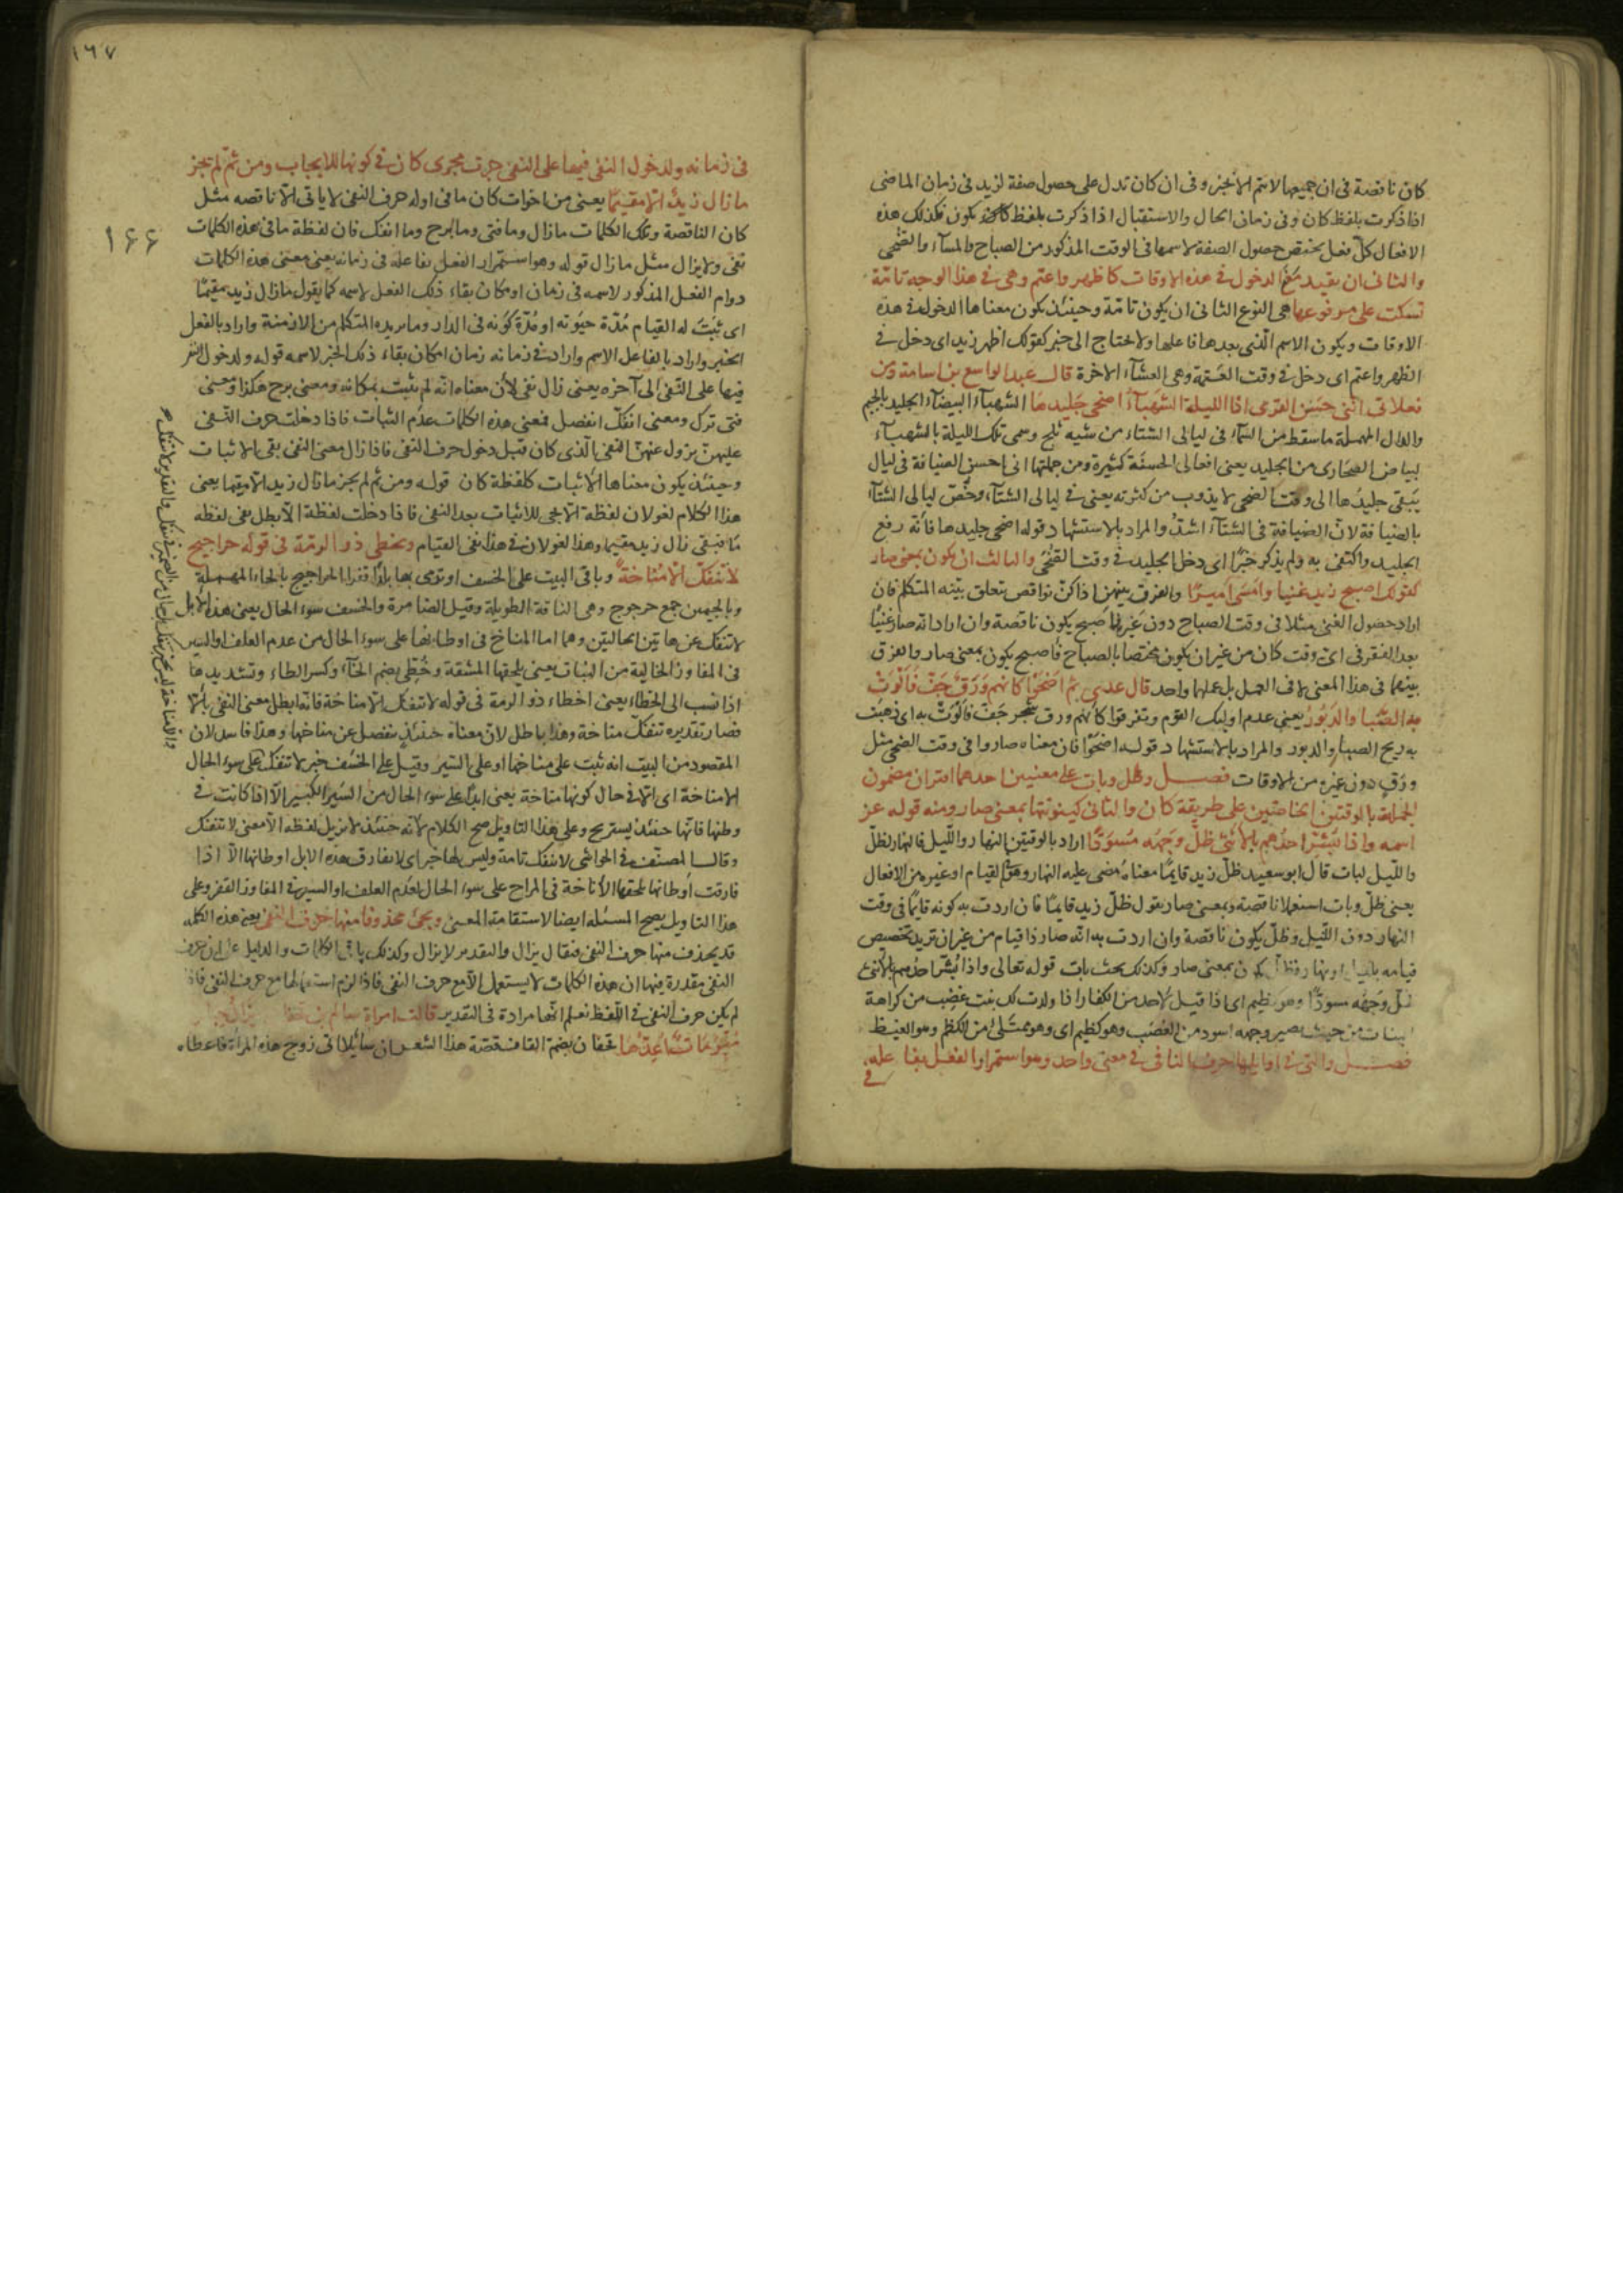 كان ناقصة فى ان جميعها لا تتم الا بخبر وفى ان كان تدل على حصول صفة لزيد فى زمان الماضى
اذا ذكرت بلفظ كان وفى زمانى الحال والاستقبال اذا ذكرت بلفظ يكون فكذلك هذه
الافعال كل فعل يختص حصول الصفة لاسمها فى الوقت المذكور من الصباح والمسآء والضحى
والثانى ان يفيد معنى الدخول فى هذه الاوقات كاظهر واعتم وهى فى هذا الوجه تامّة
تسكت على مرفوعها هى النوع الثانى ان يكون تامّة وحينئذ يكون معناها الدخول فى هذه
الاوقات ويكون الاسم الّذى بعدها فاعلها ولا تحتاج الى خبر كقولك اظهر زيد اى دخل فى
الظهر واعتم اى دخل فى وقت العتمة وهى العشآء الاخرة قال عبد الواسع بن اسامة ومن
فعلاتى انّنى حسن القرى اذا الليلة الشهبآء اضحى جليدها الشهبآء البيضآء الجليد بالجيم
والدال المهملة ما سقط من السّمآء فى ليالى الشتاء من شبه ثلج وسمى تلك الليلة بالشهبآء
لبياض الصحارى من الجليد يعنى افعالى الحسنة كثيرة ومن جملتها انى احسن الضيافة فى ليال
يبقى جليدها الى وقت الضحى لا يذوب من كثرته يعنى فى ليالى الشتآء وخصّ ليالى الشتآء
بالضيافة لانّ الضيافة فى الشتآء اشدّ والمراد بالاستشهاد قوله اضحى جليدها فانّه رفع
الجليد واكتفى به ولم يذكر خبرًا اى دخل الجليد فى وقت الضحى والثالث ان يكون بمعنى صار
كقولك اصبح زيد غنيا وامسى اميرًا والفرق بينهن اذا كنّ نواقص تعلق بنيّة المتكلم فان
اراد حصول الغنى مثلا فى وقت الصباح دون غيره فاصبح يكون ناقصة وان اراد انه صار غنيًا
بعد الفقر فى اىّ وقت كان من غير ان يكون مختصا بالصباح فاصبح يكون بمعنى صار والفرق
بينهما فى هذا المعنى لا فى العمل بل عملها واحد قال عدى ثم اضحوا كانهم ورق جفّ فالوت
به الصبا والدبور يعنى عدم اوليك القوم وتفرقوا كانهم ورق شجر جفّ فالوت به اى ذهبت
به ريح الصبا والدبور والمراد بالاستشهاد قوله اضحوا فان معناه صاروا فى وقت الضحى مثل
ورق دون غيره من الاوقات فصل وظل وبات على معنيين احدهما اقتران مضمون
الجملة بالوقتين الخاصّين على طريقة كان والثانى كينونتها بمعنى صار ومنه قوله عز
اسمه واذا بشّر احدهم بالانثى ظلّ وجهه مسودّا اراد بالوقتين النهار والليل فالنهار لظلّ
والليل لبات قال ابو سعيد ظلّ زيد قايمًا معناه مضى عليه النهار وهو فى القيام او غيره من الافعال
يعنى ظلّ وبات استعملا ناقصة وبمعنى صار يقول ظلّ زيد قايمًا فان اردت به كونه قايمًا فى وقت
النهار دون الليل وظلّ يكون ناقصة وان اردت به انّه صار ذا قيام من غير ان تريد تخصيص
قيامه بليل او نهار فظلّ يكون بمعنى صار وكذلك بحث بات قوله تعالى واذا بشّر احدهم بالانثى
ظلّ وجهه مسودّا وهو كظيم اى اذا قيل لاحد من الكفار اذا ولدت لك بنت غضب من كراهة
البنات من حيث يصير وجهه اسود من الغضب وهو كظيم اى وهو ممتلئ من الكظم وهو الغيظ
فصل والتى فى اوايلها حرف النافى فى معنى واحد وهو استمرار الفعل بفاعله
فى
١٦٧
١۶۶
فى زمانه ولدخول النفى فيها على النفى جرت مجرى كان فى كونها للايجاب ومن ثمّ لم يجز
ما زال زيدٌ الا مقيمًا يعنى من اخوات كان ما فى اوله حرف النفى لا ياتى الّا ناقصه مثل
كان الناقصة وتلك الكلمات ما زال وما فتى وما برح وما انفك فان لفظة ما فى هذه الكلمات
نفى ولا يزال مثل ما زال قوله وهو استمرار الفعل بفاعله فى زمانه يعنى معنى هذه الكلمات
دوام الفعل المذكور لاسمه فى زمان امكان بقاء ذلك الفعل لاسمه كما يقول ما زال زيد مقيمًا
اى ثبت له القيام مدّة حيوته او مدّة كونه فى الدار وما يريده المتكلم من الازمنة واراد بالفعل
الخبر واراد بالفاعل الاسم واراد فى زمانه زمان امكان بقاء ذلك الخبر لاسمه قوله ولدخول النفى
فيها على النّفى الى آخره يعنى زال نفى لأن معناه انّه لم يثبت بمكانه ومعنى برح هكذا ومعنى
فتى ترك ومعنى انفكّ انفصل فمعنى هذه الكلمات عدم الثبات فاذا دخلت حرف النّفى
عليهنّ يزول عنهنّ النفى الّذى كان قبل دخول حرف النفى فاذا زال معنى النفى بقى الاثبات
وحينئذ يكون معناها الاثبات كلفظة كان قوله ومن ثم لم يجز ما زال زيد الا مقيما يعنى
هذا الكلام لغو لان لفظة الّا يجى للاثبات بعد النفى فاذا دخلت لفظة الّا بطل نفى لفظه
ما فبقى زال زيد مقيما وهذا لغو لان فى هذا نفى القيام وتخطى ذو الرمّة فى قوله حراجيج
لا تنفكّ الا مناخةً وباقى البيت على الخسف او نرمى بها بلدًا قفرا الحراجيج بالحاء المهملة
وبالجيمين جمع حرجوج وهى الناقة الطويلة وقيل الضامرة والخسف سوء الحال يعنى هذه الابل
لا تنفك عن هاتين الحالتين وهما اما المناخ فى اوطانها على سوء الحال من عدم العلف او السير
فى المفاوز الخالية من النبات يعنى يلحقها المشقة وخُطّى بضم الخآء وكسر الطاء وتشديدها
اذا نسب الى الخطاء يعنى اخطاء ذو الرمة فى قوله لا تنفك الا مناخة فانه ابطل معنى النفى بالّا
فصار تقديره تنفكّ مناخة وهذا باطل لان معناه حينئذٍ تنفصل عن مناخها وهذا فاسد لان
المقصود من البيت انه ثبت على مناخها او على السّير وقيل على الخسف خبر لا تنفك على سوء الحال
الا مناخة اى الّا فى حال كونها مناخة يعنى ابدًا على سوء الحال من السّير الكثير الّا اذا كانت فى
وطنها فانّها حينئذ يستريح وعلى هذا التاويل صح الكلام لانّه حينئذ لا يزيل لفظه الّا معنى لا تنفك
وقال المصنّف فى الحواشى لا تنفك تامة وليس لها خبر اى لا يفارق هذه الابل اوطانها الّا اذا
فارقت اوطانها لحقها الاناخة فى المراح على سوء الحال لعدم العلف او السير فى المفاوز القفر وعلى
هذا التاويل يصح المسئله ايضا لاستقامة المعنى ويجئ محذوفا منها حرف النفى يعنى هذه الكلمه
قد يحذف منها حرف النفى فيقال يزال والتقدير لا يزال وكذلك باقى الكلمات والدليل على ان حرف
النفى مقدرة فيها ان هذه الكلمات لا يستعمل الّا مع حرف النفى فاذا لزم استعمالها مع حرف النفى فاذا
لم يكن حرف النفى فى اللّفظ نعلم انّها مرادة فى التقدير قالت امراة سالم بن قحفان
قحفان بضم القاف قصّة هذا الشعر ان سائلا اتى زوج هذه المراة فاعطاه